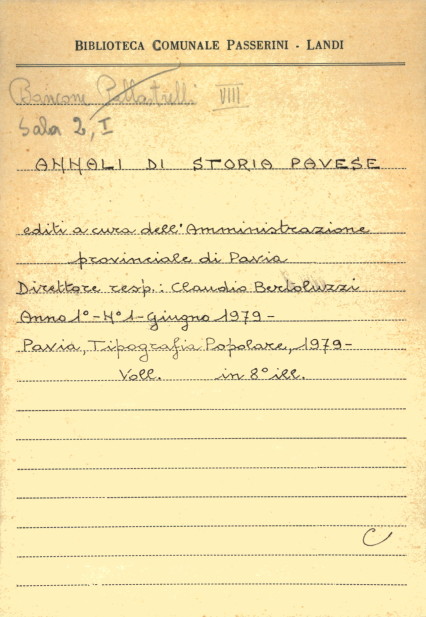 BIBLIOTECA COMUNALE PASSERINI - LANDI
Bancone Pallastrelli VIII
Sala 2, I
ANNALI DI STORIA PAVESE
editi a cura dell'Amministrazione
provinciale di Pavia
Direttore resp.: Claudio Bertoluzzi
Anno 1°-N°1-Giugno 1979-
Pavia, Tipografia Popolare, 1979-
Voll. in 8° ill.
C